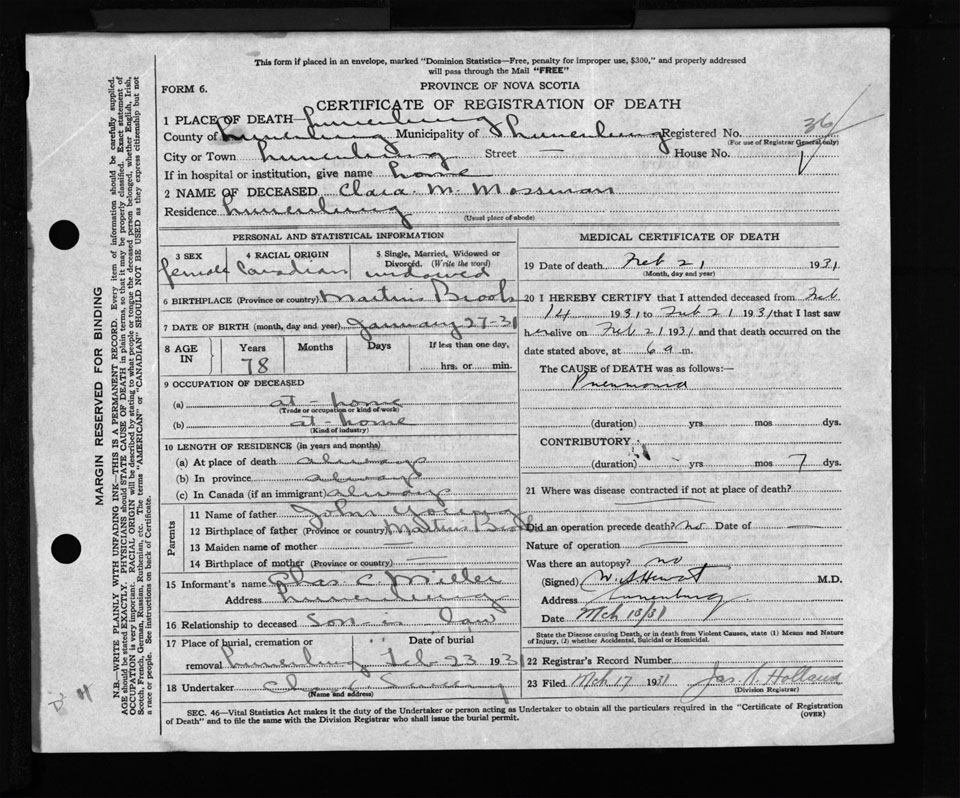 This form if placed in an envelope, marked "Dominion Statistics—Free, penalty for improper use, $300," and properly addressed
will pass through the Mail "FREE"
FORM 6.
PROVINCE OF NOVA SCOTIA
CERTIFICATE OF REGISTRATION OF DEATH
1 PLACE OF DEATH Lunenburg
County of Lunenburg Municipality of Lunenburg Registered No. 36
(For use of Registrar General only)
City or Town Lunenburg Street — House No.
If in hospital or institution, give name home
2 NAME OF DECEASED Clara M. Mossman
Residence Lunenburg
(Usual place of abode)
PERSONAL AND STATISTICAL INFORMATION
3 SEX 4 RACIAL ORIGIN 5 Single, Married, Widowed or
Divorced. (Write the word)
female Canadian widowed
6 BIRTHPLACE (Province or country) Martins Brook
7 DATE OF BIRTH (month, day and year) January 27-31
8 AGE IN Years Months Days If less than one day,
78 hrs. or min.
9 OCCUPATION OF DECEASED
(a) at-home
(Trade or occupation or kind of work)
(b) at-home
(Kind of industry)
10 LENGTH OF RESIDENCE (in years and months)
(a) At place of death always
(b) In province always
(c) In Canada (if an immigrant) always
Parents
11 Name of father John Young
12 Birthplace of father (Province or country) Martins Brook
13 Maiden name of mother
14 Birthplace of mother (Province or country) —
15 Informant's name Chas C. Miller
Address Lunenburg
16 Relationship to deceased Son in law
17 Place of burial, cremation or Date of burial
removal Lunenburg Feb 23 1931
18 Undertaker
(Name and address)
MEDICAL CERTIFICATE OF DEATH
19 Date of death Feb 21 1931
(Month, day and year)
20 I HEREBY CERTIFY that I attended deceased from Feb
14 1931 to Feb 21 1931 that I last saw
her alive on Feb 21 1931 and that death occurred on the
date stated above, at 6 a m.
The CAUSE of DEATH was as follows:—
Pneumonia
(duration) yrs mos dys.
CONTRIBUTORY
(duration) yrs mos 7 dys.
21 Where was disease contracted if not at place of death?
—
Did an operation precede death? no Date of —
Nature of operation —
Was there an autopsy? no
(Signed) M.D.
Address Lunenburg
Date Mch 10/31
State the Disease causing Death, or in death from Violent Causes, state (1) Means and Nature
of Injury, (2) whether Accidental, Suicidal or Homicidal.
22 Registrar's Record Number
23 Filed Mch 17 1931 Jas. H. Holland
(Division Registrar)
SEC. 46—Vital Statistics Act makes it the duty of the Undertaker or person acting as Undertaker to obtain all the particulars required in the "Certificate of Registration
of Death" and to file the same with the Division Registrar who shall issue the burial permit. (OVER)
MARGIN RESERVED FOR BINDING
N.B.—WRITE PLAINLY WITH UNFADING INK—THIS IS A PERMANENT RECORD. Every item of information should be carefully supplied.
AGE should be stated EXACTLY. PHYSICIANS should STATE CAUSE OF DEATH in plain terms, so that it may be properly classified. Exact statement of
OCCUPATION is very important. RACIAL ORIGIN will be described by stating to what people or tongue the deceased person belonged, whether English, Irish,
Scotch, French, German, Russian, Ruthenian, etc. The terms "AMERICAN" or "CANADIAN" SHOULD NOT BE USED as they express citizenship but not
a race or people. See instructions on back of Certificate.